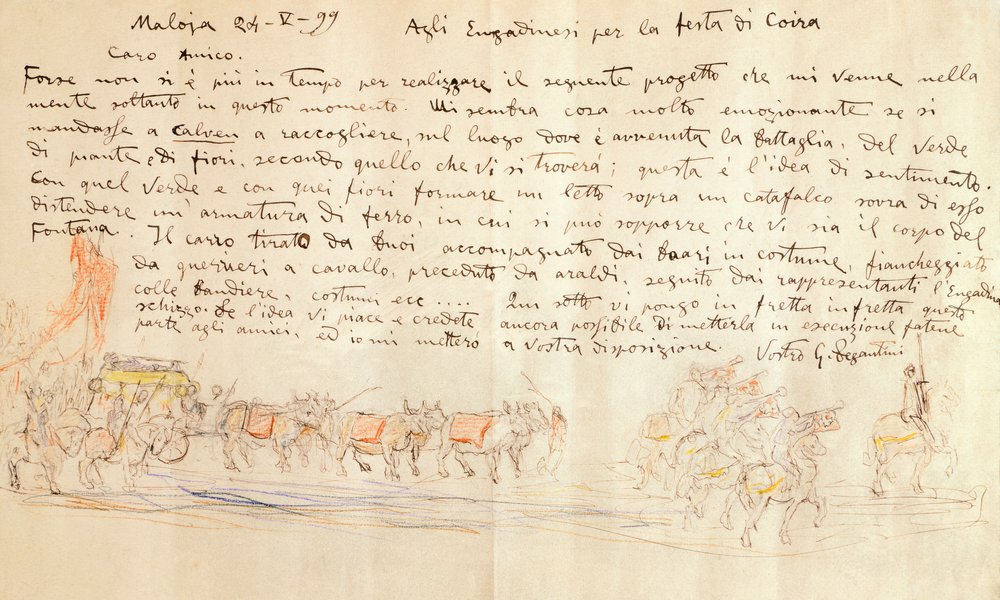 Maloja 24-V-99 Agli Engadinesi per la festa di Coira
Caro Amico.
Forse non si è più in tempo per realizzare il seguente progetto che mi venne nella
mente soltanto in questo momento. Mi sembra cosa molto emozionante se si
mandasse a Calven a raccogliere, sul luogo dove è avvenuta la Battaglia, del verde
di piante e di fiori, secondo quello che vi si troverà; questa è l'idea di sentimento.
Con quel verde e con quei fiori formare un letto sopra un catafalco sovra di esso
distendere un'armatura di ferro, in cui si può supporre che vi sia il corpo del
Fontana. Il carro tirato da buoi accompagnato dai Boari in costume, fiancheggiato
da guerrieri a cavallo, preceduto da araldi, seguito dai rappresentanti l'Engadina
colle Bandiere, costumi ecc.... Qui sotto vi pongo in fretta in fretta questo
schizzo. Se l'idea vi piace e credete ancora possibile di metterla in esecuzione fatene
parte agli amici, ed io mi metterò a vostra disposizione. Vostro G. Segantini